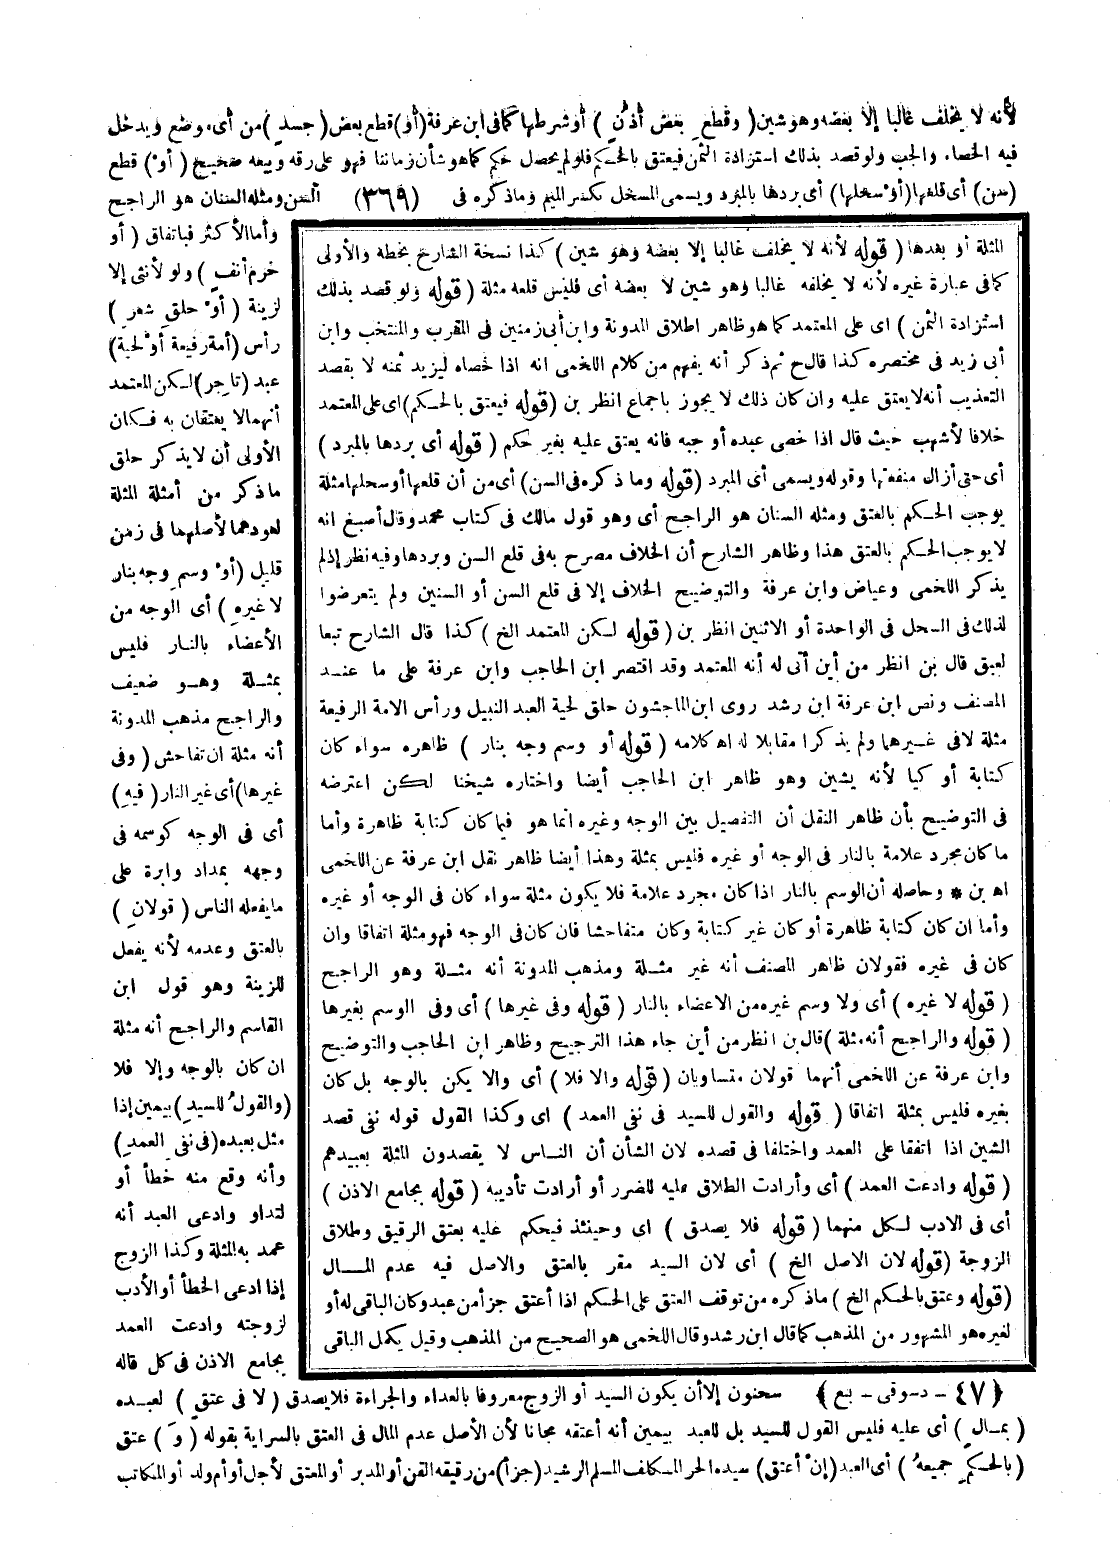 لأنه لا يخلف غالبا إلا بعضه وهو شين ( وقطع بعض أذن ) أو شرطها كما في ابن عرفة (أو) قطع بعض ( جسد )من أى موضع ويدخل
فيه الخصاء والجب ولو قصد بذلك استزادة الثمن فيعتق بالحكم فلو لم يحصل حكم كما هو شأن زماننا فهو على رقه وبيعه صحيح ( أو ) قطع
(سن) أى قلعها (أو سحلها) أى بردها بالمبرد ويسمى المسحل بكسر الميم وما ذكره فى (٣٦٩) السن ومثله السنان هو الراجح
وأما الأكثر فباتفاق ( أو
خرم أنف ) ولو لأنثى إلا
لزينة ( أو حلق شعر )
رأس (أمة رفيعة أو لحية)
عبد (تاجر) لكن المعتمد
أنهما لا يعتقان به فكان
الأولى أن لا يذكر حلق
ما ذكر من أمثلة المثلة
لعودهما لأصلهما فى زمن
قليل (أو وسم وجه بنار
لا غيره ) أى الوجه من
الأعضاء بالنار فليس
بمثلة وهو ضعيف
والراجح مذهب المدونة
أنه مثلة ان تفاحش ( وفى
غيرها) أى غير النار ( فيه )
أى فى الوجه كوسمه فى
وجهه بمداد وابرة على
ما يفعله الناس ( قولان )
بالعتق وعدمه لأنه يفعل
للزينة وهو قول ابن
القاسم والراجح أنه مثلة
ان كان بالوجه وإلا فلا
(والقول للسيد) بيمين إذا
مثل بعبده (فى نفى العمد)
وأنه وقع منه خطأ أو
لتداو وادعى العبد أنه
عمد به المثلة وكذا الزوج
إذا ادعى الخطأ أو الأدب
لزوجته وادعت العمد
بجامع الاذن فى كل قاله
المثلة أو بعدها ( قوله لأنه لا يخلف غالبا إلا بعضه وهو شين ) كذا نسخة الشارح بخطه والأولى
كما فى عبارة غيره لأنه لا يخلفه غالبا وهو شين لا بعضه أى فليس قلعه مثلة ( قوله ولو قصد بذلك
استزادة الثمن ) اى على المعتمد كما هو ظاهر اطلاق المدونة وابن أبى زمنين فى المقرب والمنتخب وابن
أبى زيد فى مختصره كذا قال ح ثم ذكر أنه يفهم من كلام اللخمى انه اذا خصاه ليزيد ثمنه لا بقصد
التعذيب أنه لا يعتق عليه وان كان ذلك لا يجوز باجماع انظر بن (قوله فيعتق بالحكم) اى على المعتمد
خلافا لأشهب حيث قال اذا خصى عبده أو جبه فانه يعتق عليه بغير حكم ( قوله أى بردها بالمبرد )
أى حتى أزال منفعتها وقوله ويسمى أى المبرد (قوله وما ذكره فى السن) أى من أن قلعها أو سحلها مثلة
يوجب الحكم بالعتق ومثله السنان هو الراجح أى وهو قول مالك فى كتاب محمد وقال أصبغ انه
لا يوجب الحكم بالعتق هذا وظاهر الشارح أن الخلاف مصرح به فى قلع السن وبردها وفيه نظر إذ لم
يذكر اللخمى وعياض وابن عرفة والتوضيح الخلاف إلا فى قلع السن أو السنين ولم يتعرضوا
لذلك فى السحل فى الواحدة أو الاثنين انظر بن ( قوله لكن المعتمد الخ ) كذا قال الشارح تبعا
لعبق قال بن انظر من أين أتى له أنه المعتمد وقد اقتصر ابن الحاجب وابن عرفة على ما عند
المصنف ونص ابن عرفة ابن رشد روى ابن الماجشون حلق لحية العبد النبيل ورأس الامة الرفيعة
مثلة لا فى غيرهما ولم يذكرا مقابلا له اه كلامه ( قوله أو وسم وجه بنار ) ظاهره سواء كان
كتابة أو كيا لأنه يشين وهو ظاهر ابن الحاجب أيضا واختاره شيخنا لكن اعترضه
فى التوضيح بأن ظاهر النقل أن التفصيل بين الوجه وغيره انما هو فيما كان كتابة ظاهرة وأما
ما كان مجرد علامة بالنار فى الوجه أو غيره فليس بمثلة وهذا أيضا ظاهر نقل ابن عرفة عن اللخمى
اه بن * وحاصله أن الوسم بالنار اذا كان مجرد علامة فلا يكون مثلة سواء كان فى الوجه أو غيره
وأما ان كان كتابة ظاهرة أو كان غير كتابة وكان متفاحشا فان كان فى الوجه فهو مثلة اتفاقا وان
كان فى غيره فقولان ظاهر المصنف أنه غير مثلة ومذهب المدونة أنه مثلة وهو الراجح
( قوله لا غيره ) أى ولا وسم غيره من الاعضاء بالنار ( قوله وفى غيرها ) أى وفى الوسم بغيرها
( قوله والراجح أنه مثلة )قال بن انظر من أين جاء هذا الترجيح وظاهر ابن الحاجب والتوضيح
وابن عرفة عن اللخمى أنهما قولان متساويان ( قوله والا فلا ) أى والا يكن بالوجه بل كان
بغيره فليس بمثلة اتفاقا ( قوله والقول للسيد فى نفى العمد ) اى وكذا القول قوله نفى قصد
الشين اذا اتفقا على العمد واختلفا فى قصده لان الشأن أن الناس لا يقصدون المثلة بعبيدهم
( قوله وادعت العمد ) أى وأرادت الطلاق عليه للضرر أو أرادت تأديبه ( قوله بجامع الاذن )
أى فى الادب لكل منهما ( قوله فلا يصدق ) اى وحينئذ فيحكم عليه بعتق الرقيق وطلاق
الزوجة (قوله لان الاصل الخ ) أى لان السيد مقر بالعتق والاصل فيه عدم المال
(قوله وعتق بالحكم الخ ) ما ذكره من توقف العتق على الحكم اذا أعتق جزأ من عبد وكان الباقى له أو
لغيره هو المشهور من المذهب كما قال ابن رشد وقال اللخمى هو الصحيح من المذهب وقيل يكمل الباقى
(٤٧ - دسوقى - بع) سحنون إلا أن يكون السيد أو الزوج معروفا بالعداء والجراءة فلا يصدق ( لا فى عتق ) لعبده
( بمال ) أى عليه فليس القول للسيد بل للعبد بيمين أنه أعتقه مجانا لأن الأصل عدم المال فى العتق بالسراية بقوله ( و ) عتق
( بالحكم جميعه ) أى العبد (إن أعتق) سيده الحر المكلف المسلم الرشيد (جزأ) من رقيقه القن أو المدبر أو المعتق لأجل أو أم ولد أو المكاتب